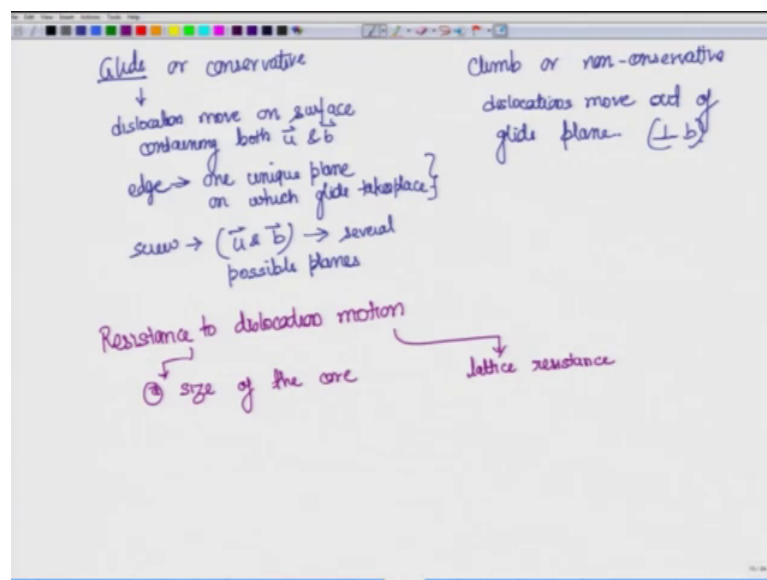 Glide or conservative
dislocation move on surface
containing both u⃗ & b⃗
edge → one unique plane
on which glide takes place}
screw → (u⃗ & b⃗) → several
possible planes
Climb or non-conservative
dislocations move out of
glide plane (⊥ b⃗)
Resistance to dislocation motion
size of the core
lattice resistance